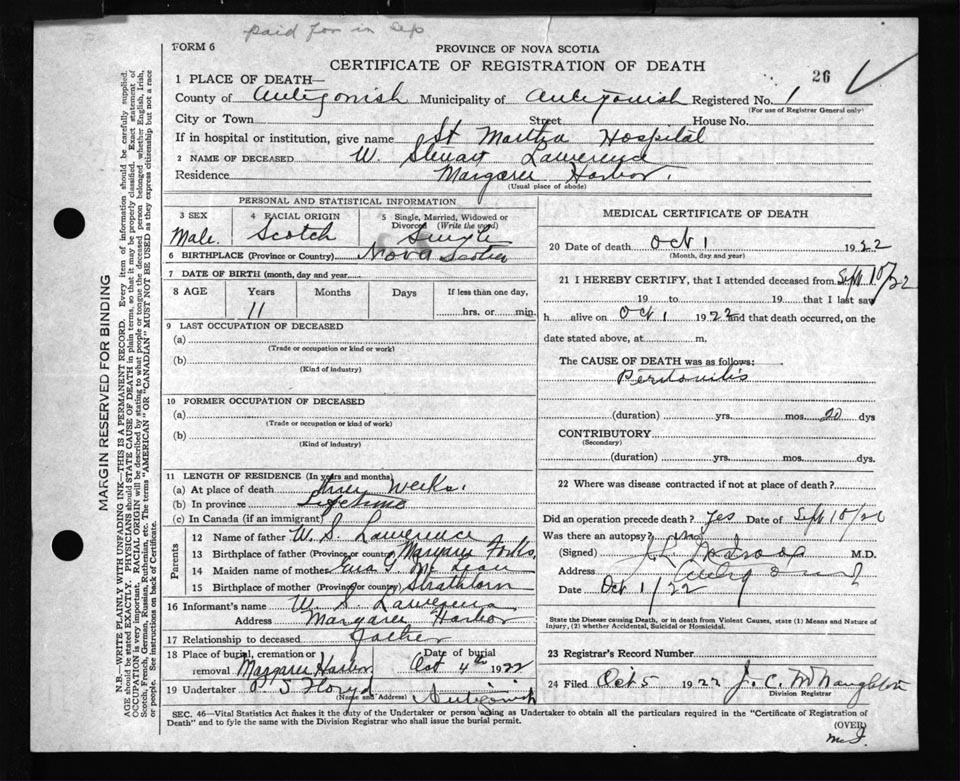 paid for in Sep
FORM 6
PROVINCE OF NOVA SCOTIA
CERTIFICATE OF REGISTRATION OF DEATH
26
1 PLACE OF DEATH—
County of Antigonish Municipality of Antigonish Registered No. 1
(For use of Registrar General only)
City or Town Street House No.
If in hospital or institution, give name St Martha Hospital
2 NAME OF DECEASED W. Stewart Lawrence
Residence Margaree Harbor.
(Usual place of abode)
PERSONAL AND STATISTICAL INFORMATION
3 SEX Male.
4 RACIAL ORIGIN Scotch
5 Single, Married, Widowed or Divorced (Write the word) Single
6 BIRTHPLACE (Province or Country) Nova Scotia
7 DATE OF BIRTH (month, day and year)
8 AGE Years Months Days If less than one day,
11 hrs. or min.
9 LAST OCCUPATION OF DECEASED
(a)
(Trade or occupation or kind or work)
(b)
(Kind of industry)
10 FORMER OCCUPATION OF DECEASED
(a)
(Trade or occupation or kind of work)
(b)
(Kind of industry)
11 LENGTH OF RESIDENCE (In years and months)
(a) At place of death three weeks.
(b) In province Lifetime
(c) In Canada (if an immigrant)
Parents
12 Name of father W. S. Lawrence
13 Birthplace of father (Province or country) Margaree Forks.
14 Maiden name of mother McLean
15 Birthplace of mother (Province or country) Strathlorn
16 Informant's name W. S. Lawrence
Address Margaree Harbor
17 Relationship to deceased Father
18 Place of burial, cremation or removal Margaree Harbor Date of burial Oct 4th 1922
19 Undertaker P S Floyd Antigonish
(Name and Address)
MEDICAL CERTIFICATE OF DEATH
20 Date of death Oct 1 1922
(Month, day and year)
21 I HEREBY CERTIFY, that I attended deceased from Sept 10/22
19 to 19 that I last saw
h alive on Oct 1 1922 and that death occurred, on
date stated above, at m.
The CAUSE OF DEATH was as follows:
Peritonitis
(duration) yrs. mos. 20 dys
CONTRIBUTORY
(Secondary)
(duration) yrs. mos. dys.
22 Where was disease contracted if not at place of death?
Did an operation precede death? Yes Date of Sept 10/22
Was there an autopsy? No
(Signed) M.D.
Address Antigonish
Date Oct 1/22
State the Disease causing Death, or in death from Violent Causes, state (1) Means and Nature of
Injury, (2) whether Accidental, Suicidal or Homicidal.
23 Registrar's Record Number
24 Filed Oct 5 1922 J. C. McNaughton
Division Registrar
SEC. 46—Vital Statistics Act makes it the duty of the Undertaker or person acting as Undertaker to obtain all the particulars required in the "Certificate of Registration of
Death" and to fyle the same with the Division Registrar who shall issue the burial permit.
(OVER)
MARGIN RESERVED FOR BINDING
N.B.—WRITE PLAINLY WITH UNFADING INK—THIS IS A PERMANENT RECORD. Every item of information should be carefully supplied.
AGE should be stated EXACTLY. PHYSICIANS should STATE CAUSE OF DEATH in plain terms, so that it may be properly classified. Exact statement of
OCCUPATION is very important. RACIAL ORIGIN will be described by stating to what people or tongue the deceased person belonged whether English, Irish,
Scotch, French, German, Russian, Ruthenian, etc. The terms "AMERICAN" OR "CANADIAN" MUST NOT BE USED as they express citizenship but not a race
or people. See instructions on back of Certificate.